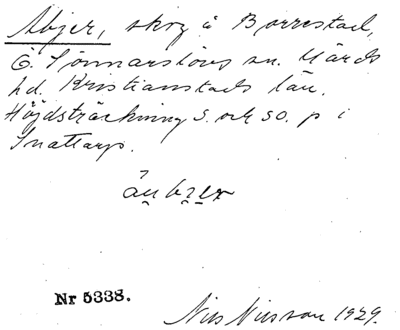 Åbjer, skog å Borrestad,
Ö. Sönnarslövs sn. Gärds
hd. Kristianstads län.
Höjdsträckning S. och SO. p i
Snattarp.
Nr 5338.
Nils Nilsson 1929.